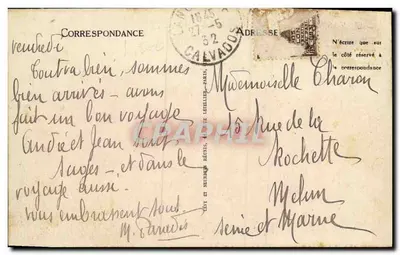 CORRESPONDANCE
ADRESSE
N'écrire que sur
le côté réservé à
la correspondance
CALVADOS
27-5
52
vendredi
Tout va bien, sommes
bien arrivés - avons
fait un bon voyage
André et Jean sont
sages - et dans le
voyage aussi.
vous embrassent tous
Mademoiselle Charon
rue de la
Rochette
Melun
Seine et Marne
CPAPHIL